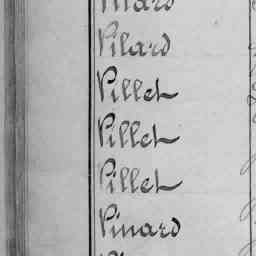 Pilard
Pillet
Pillet
Pillet
Pinard